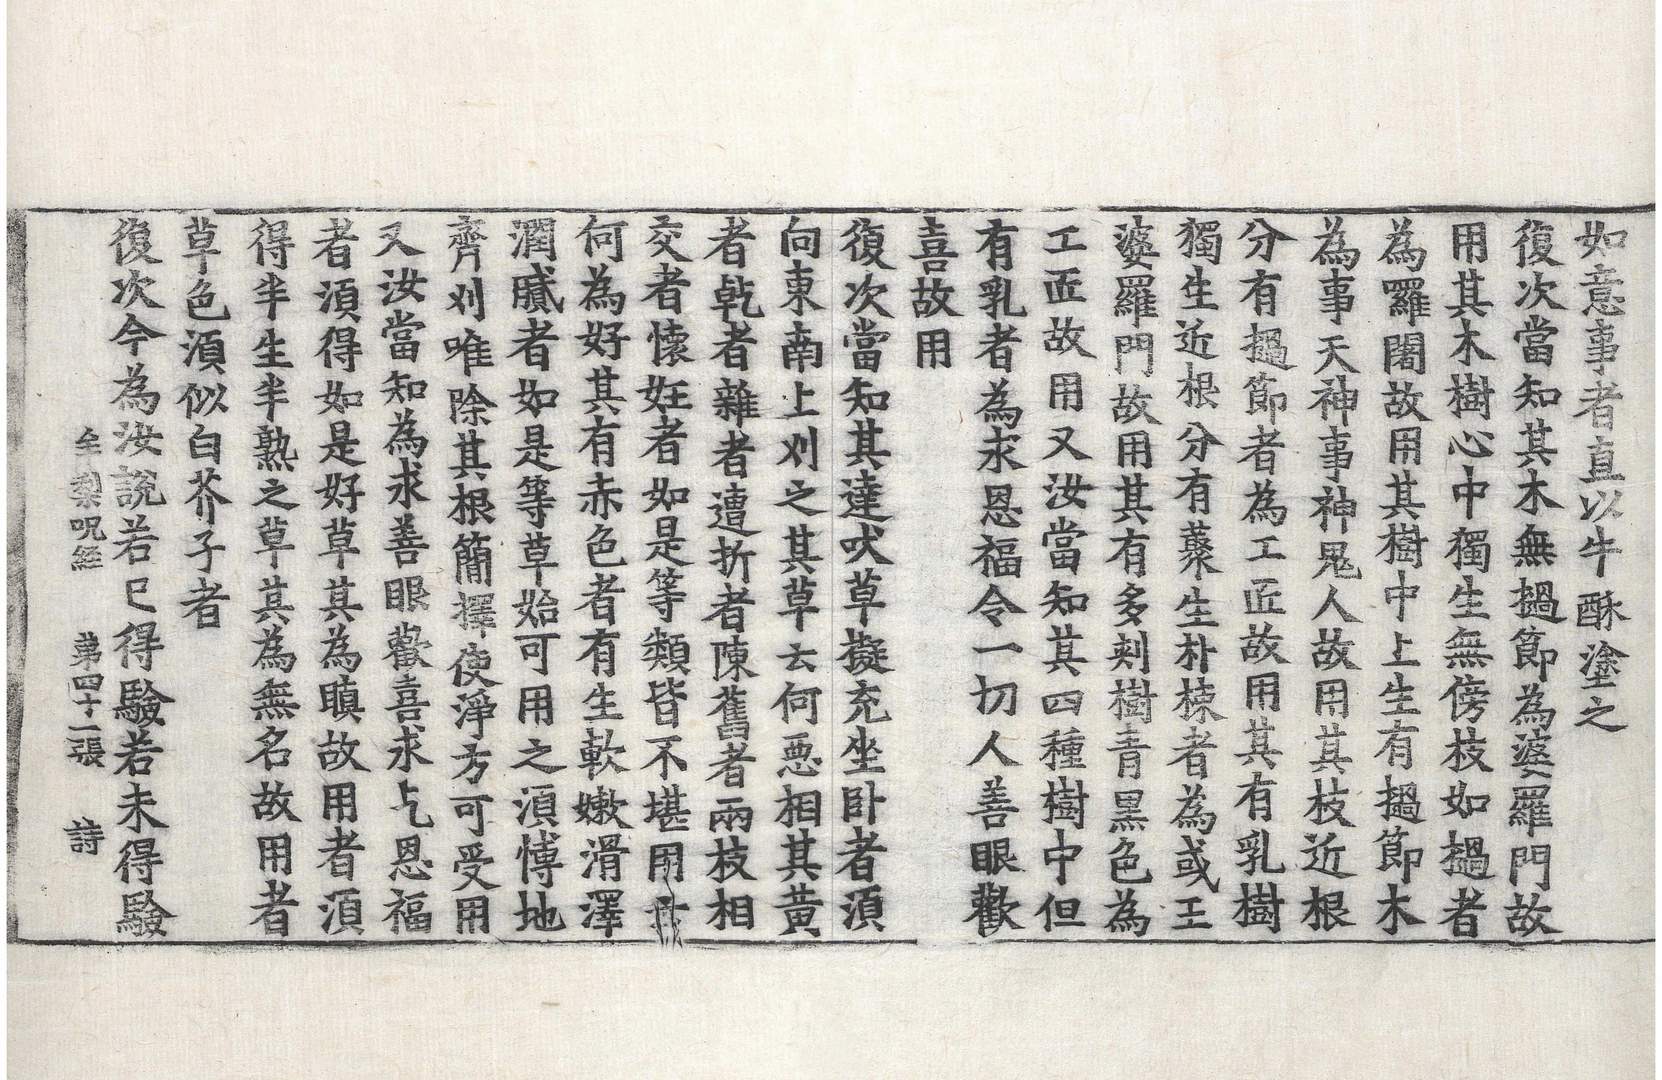 如意事者直以牛酥塗之
復次當知其木無撾節為婆羅門故
用其木樹心中獨生無傍枝如撾者
為囉闍故用其樹中上生有撾節木
為事天神事神鬼人故用其枝近根
分有撾節者為工匠故用其有乳樹
獨生近根分有蘂生朴棟者為或王
婆羅門故用其有多刾樹青黑色為
工匠故用又汝當知其四種樹中但
有乳者為求恩福令一切人善眼歡
喜故用
復次當知其達吠草擬充坐卧者湏
向東南上刈之其草去何惡相其黃
者乾者雜者遭折者陳舊者兩枝相
交者懐妊者如是等類皆不堪用
何為好其有赤色者有生軟嫩滑澤
潤膩者如是等草始可用之湏愽地
齊刈唯除其根簡擇使淨方可受用
又汝當知為求善眼歡喜求乞恩福
者湏得如是好草其為瞋故用者湏
得半生半熟之草其為無名故用者
草色湏似白芥子者
復次今為汝說若巳得驗若未得驗
牟梨呪経 苐四十二張 詩